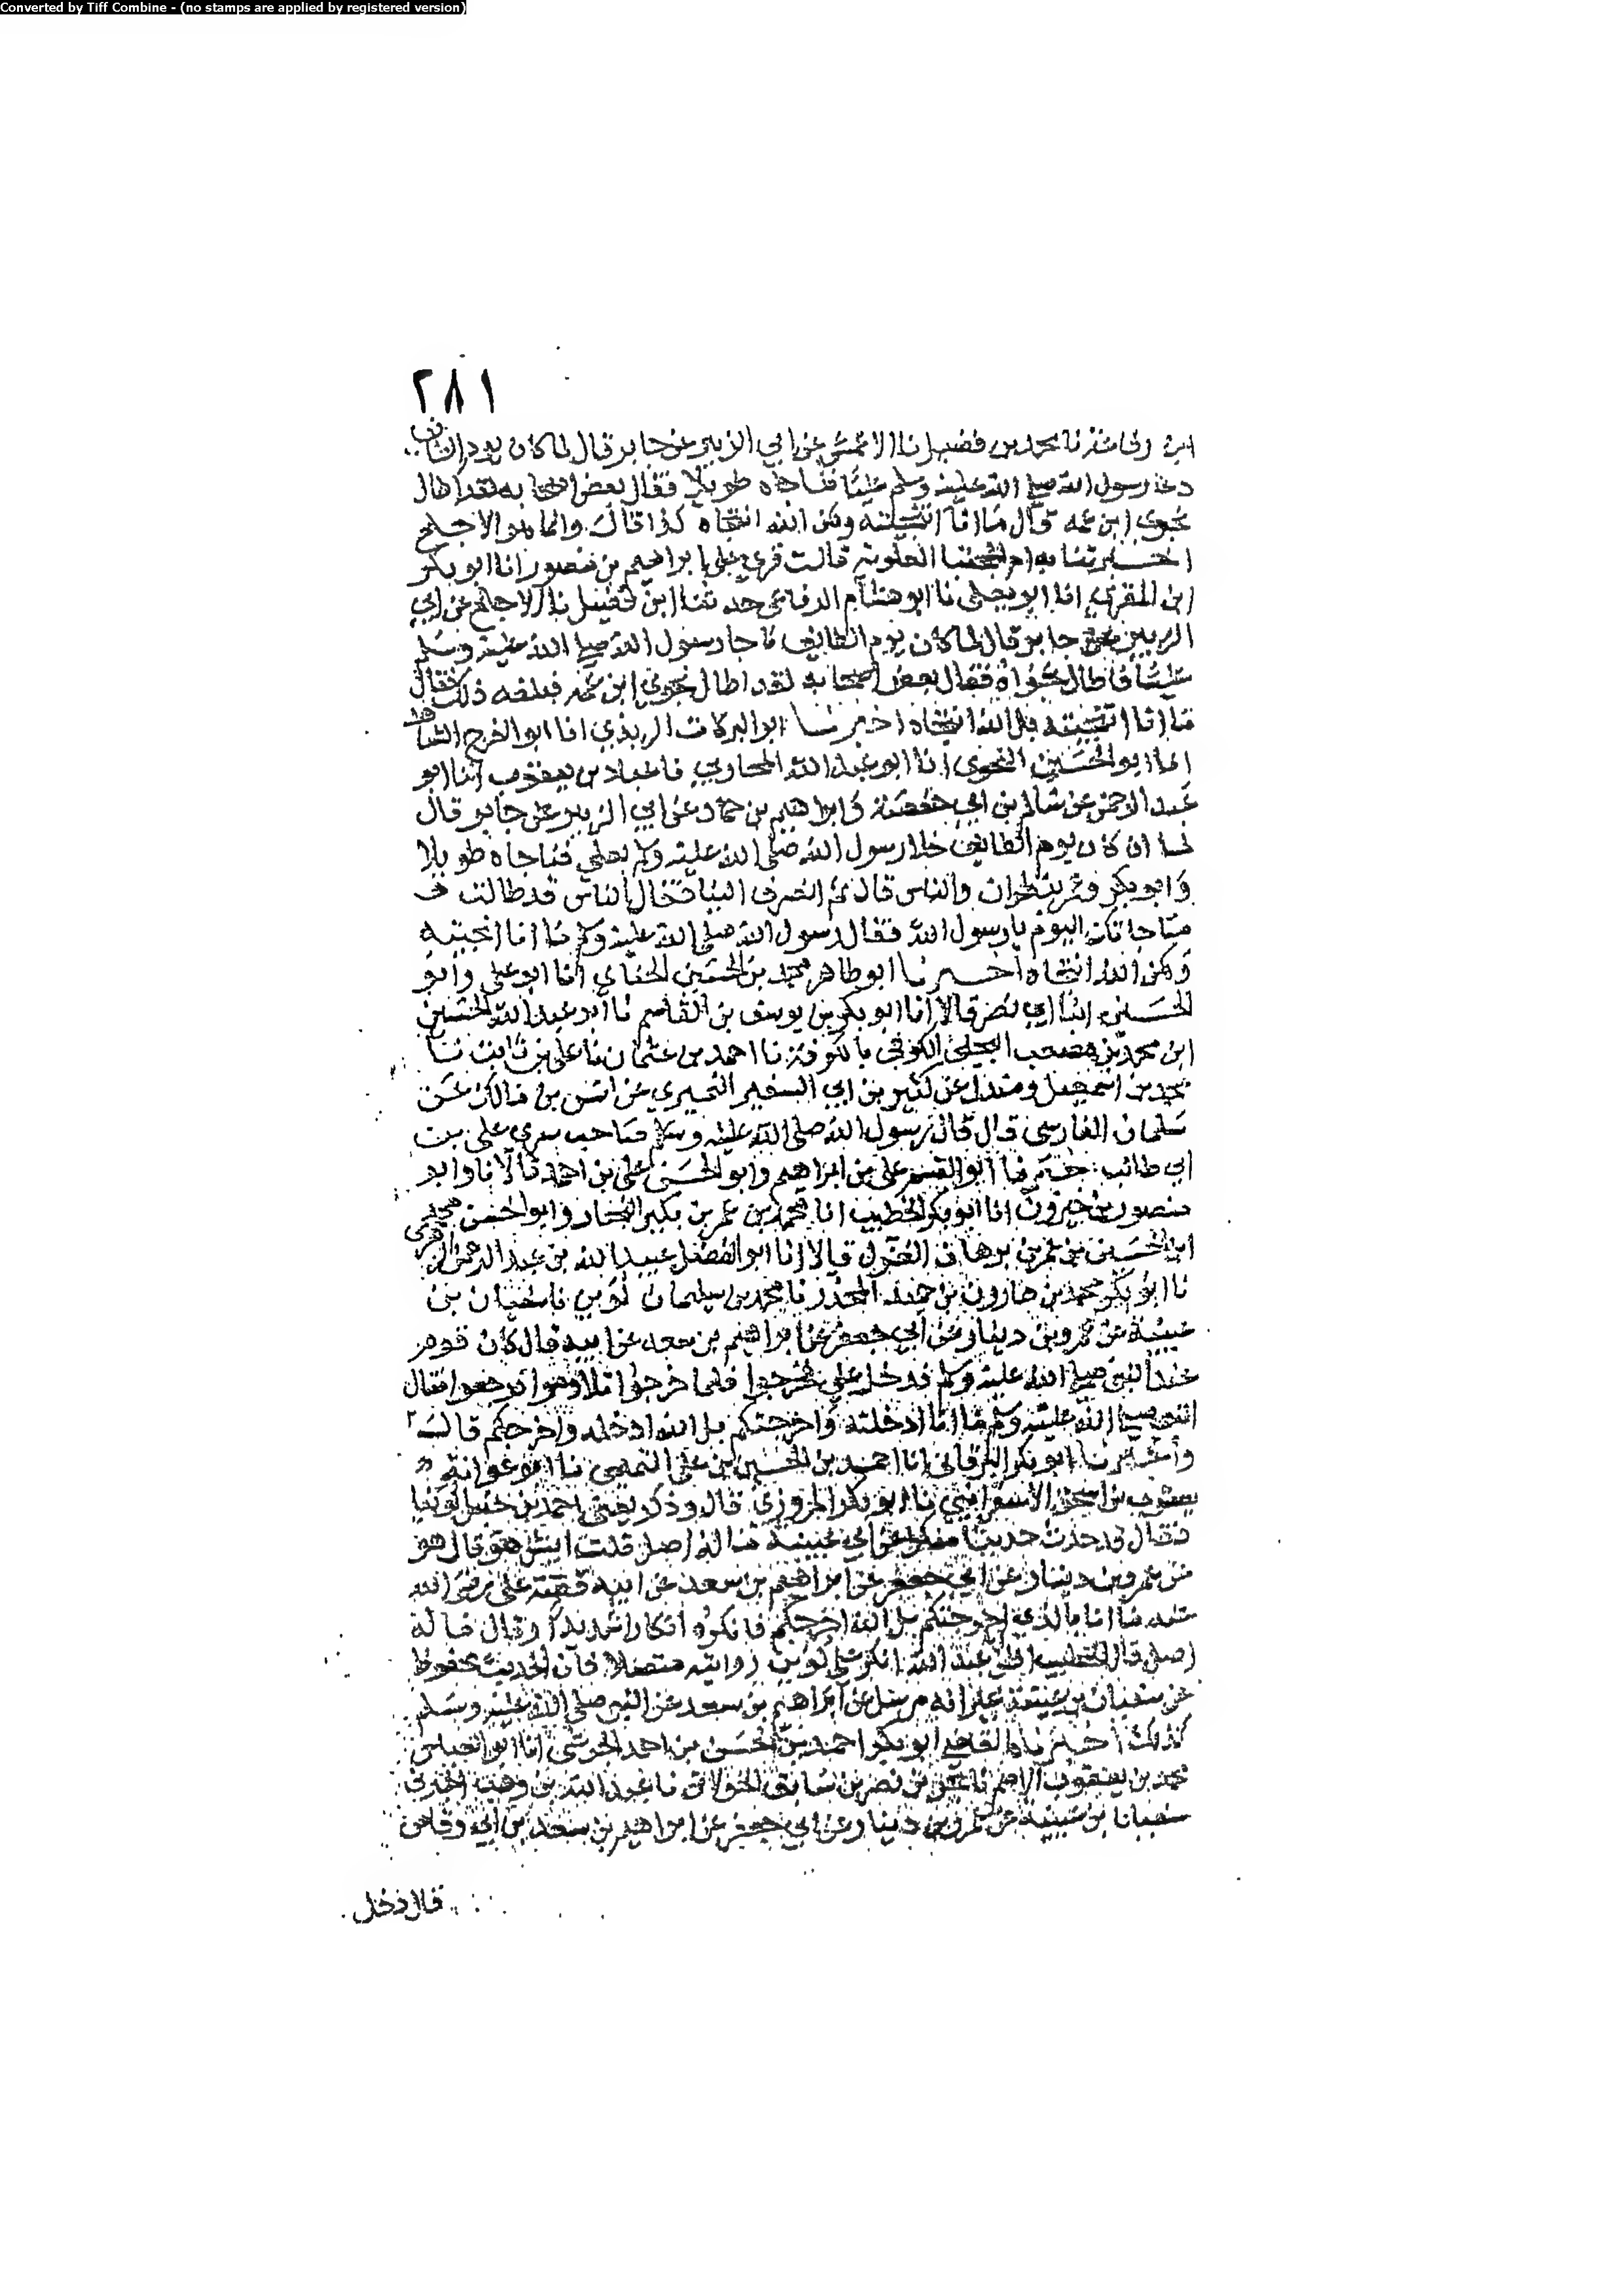 Converted by Tiff Combine - (no stamps are applied by registered version)
٢٨١
محمد بن فضيل نا الاعمش عن ابي الزبير عن جابر قال لما كان يوم الطائف
دعا رسول الله صلى الله عليه وسلم عليا فناجاه طويلا فقال بعض اصحابه لقد اطال
نجوى ابن عمه قال ما انا انتجيته ولكن الله انتجاه كذا قال وانما هو الاجلح
اخبرتنا به ام المجتبا العلوية قالت قري على ابراهيم بن منصور انا ابو بكر
ابن المقري انا ابو يعلى نا ابو هشام الرفاعي حدثنا ابن فضيل نا الاجلح عن ابي
الزبير عن جابر قال لما كان يوم الطايف ناجا رسول الله صلى الله عليه وسلم
عليا فاطال نجواه فقال بعض اصحابه لقد اطال نجوى ابن عمه فبلغه ذلك فقال
ما انا انتجيته بل الله انتجاه اخبرنا ابو البركات الزيدي انا ابو الفرج الشاهد
انا ابو الحسين النحوي انا ابو عبد الله المحاربي نا عباد بن يعقوب انا ابو
عبد الرحمن عن سالم بن ابي حفصة وابراهيم بن حماد عن ابي الزبير عن جابر قال
لما ان كان يوم الطايف خلا رسول الله صلى الله عليه وسلم بعلي فناجاه طويلا
وابو بكر وعمر ينظران والناس قال ثم انصرف الينا فقال الناس قد طالت
مناجاتك اليوم يا رسول الله فقال رسول الله صلى الله عليه وسلم ما انا انتجيته
ولكن الله انتجاه اخبرنا ابو طاهر محمد بن الحسين الحنائي انا ابو علي وابو
الحسين ابنا ابي نصر قالا انا ابو بكر بن يوسف بن القاسم نا ابو عبد الله الحسين
ابن محمد بن مصعب البجلي الكوفي بالكوفة نا احمد بن عثمان نا علي بن ثابت نا
محمد بن اسمعيل ومندل عن كثير بن ابي السفير النميري عن انس بن مالك عن
سلمان الفارسي قال قال رسول الله صلى الله عليه وسلم صاحب سري علي بن
ابي طالب اخبرنا ابو القسم علي بن ابراهيم وابو الحسن علي بن احمد قالا نا وابو
منصور بن خيرون انا ابو بكر الخطيب انا محمد بن عمر بن بكير النجار وابو الحسن محمد
ابن الحسين بن عمر بن برهان الغزال قالا انا ابو الفضل عبيد الله بن عبد الرحمن الزهري
نا ابو بكر محمد بن هارون بن حميد المجدر نا محمد بن سليمان لوين نا سفيان بن
عيينة عن عمرو بن دينار عن ابي جعفر عن ابراهيم بن سعد عن ابيه قال كان قوم
عند النبي صلى الله عليه وسلم فدخل علي فخرجوا فلما خرجوا تلاوموا فرجعوا فقال
النبي صلى الله عليه وسلم ما انا ادخلته واخرجتكم بل الله ادخله واخرجكم قال
واخبرنا ابو بكر البرقاني انا احمد بن الحسين بن علي التميمي نا ابو عوانة
يعقوب بن اسحق الاسفرايني نا ابو بكر المروزي قال وذكر يعني احمد بن حنبل لوينا
فقال قد حدث حديثا منكرا عن ابن عيينة ما له اصل قلت ايش هو قال هو
عن عمرو بن دينار عن ابي جعفر عن ابراهيم بن سعد عن ابيه قصة علي رضي الله
عنه ما انا بالذي اخرجتكم بل الله اخرجكم فانكره انكارا شديدا وقال ما له
اصل قال الخطيب ابو عبد الله انكر على لوين روايته متصلا فان الحديث محفوظ
عن سفيان بن عيينة غير انه مرسل عن ابراهيم بن سعد عن النبي صلى الله عليه وسلم
كذلك اخبرناه القاضي ابو بكر احمد بن الحسن بن احمد الحرشي انا ابو العباس
محمد بن يعقوب الاصم نا بحر بن نصر بن سابق الخولاني نا عبد الله بن وهب اخبرني
سفيان بن عيينة عن عمرو بن دينار عن ابي جعفر عن ابراهيم بن سعد بن ابي وقاص
قال دخل